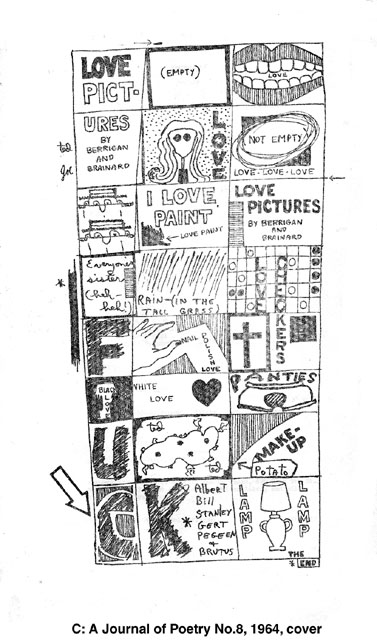 LOVE
PICT-
(EMPTY)
LOVE
URES
BY
BERRIGAN
AND
BRAINARD
ted
Joe
LOVE
NOT EMPTY
LOVE-LOVE-LOVE
I LOVE
PAINT
LOVE PAINT
LOVE
PICTURES
BY BERRIGAN
AND
BRAINARD
Everyone's
sister
(heh-
heh!)
RAIN-(IN THE
TALL GRASS)
LOVE
CHECKERS
F
NAIL POLISH
LOVE
BLACK
LOVE
WHITE
LOVE
PANTIES
U
ted
ted
MAKE-
UP
POTATO
C
K
Albert
Bill
STANLEY
* GERT
PEGEEN
+
BRUTUS
LAMP
LAMP
THE
END
C: A Journal of Poetry No.8, 1964, cover